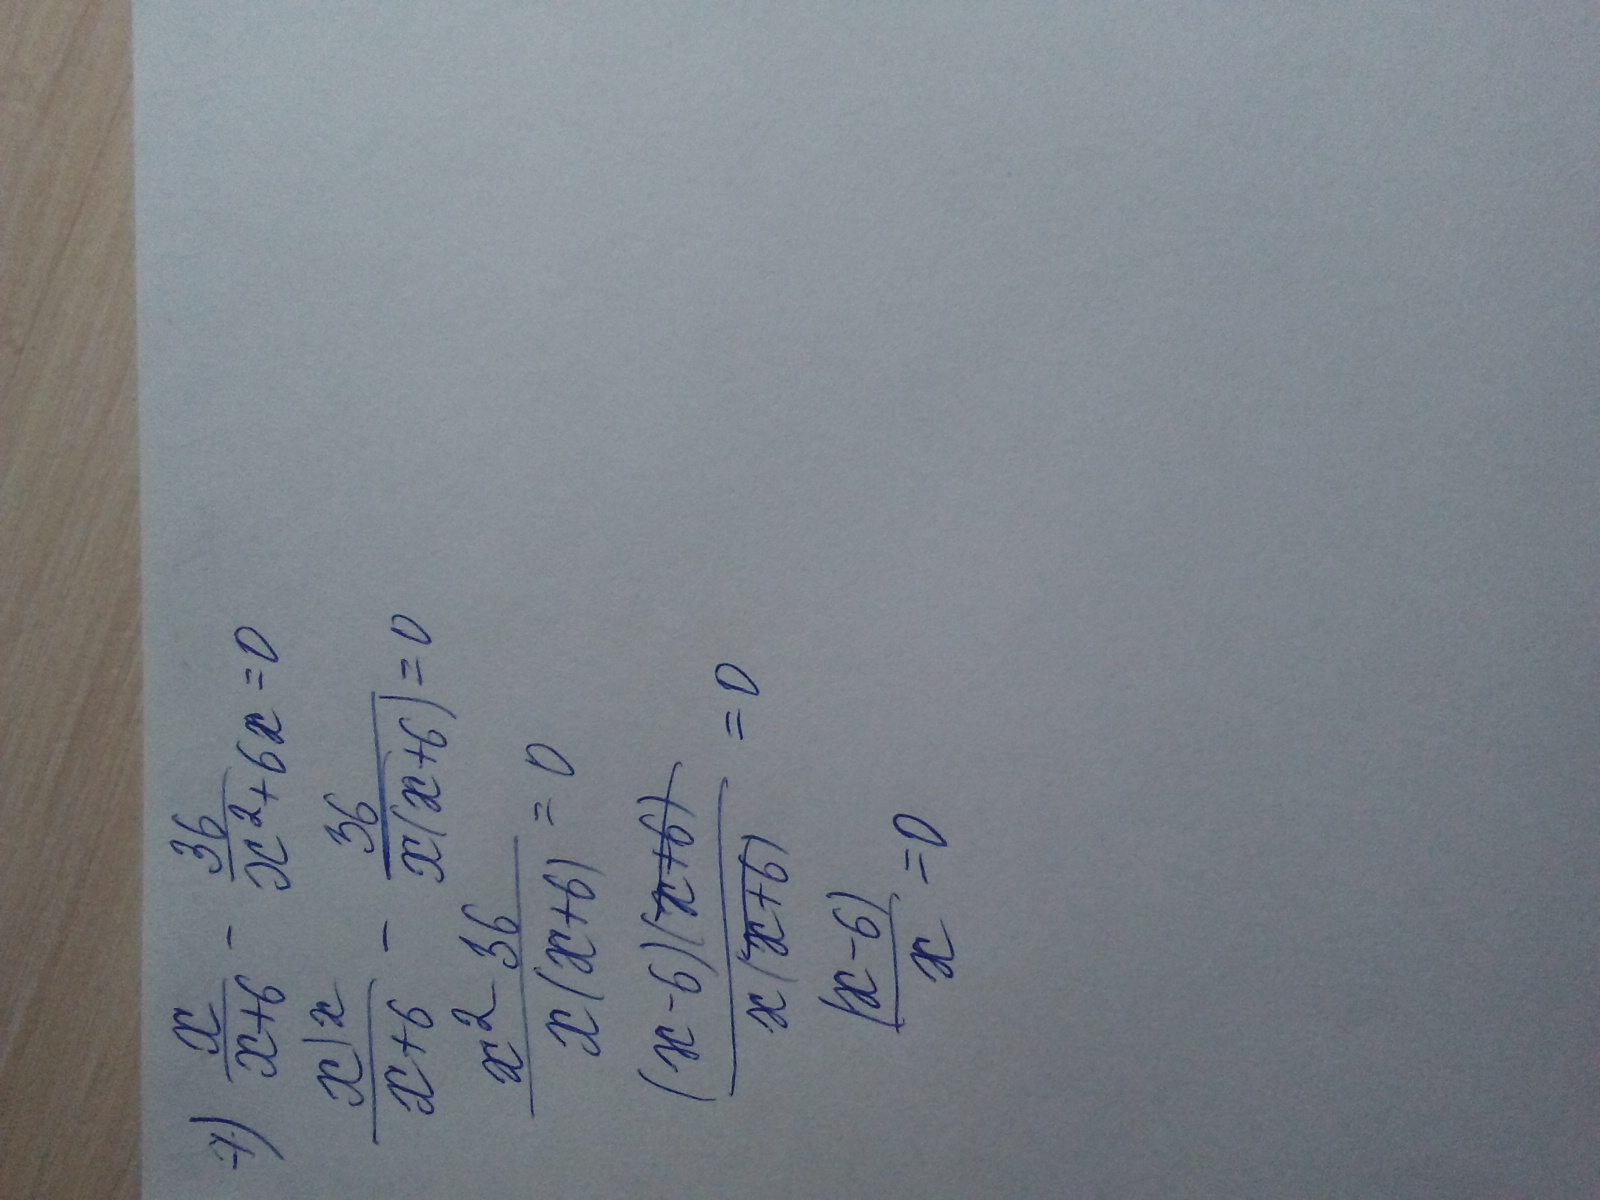 7) x/(x+6) - 36/(x²+6x) = 0
x)x/(x+6) - 36/(x(x+6)) = 0
(x² - 36)/(x(x+6)) = 0
(x-6)(x+6)/(x(x+6)) = 0
(x-6)/x = 0